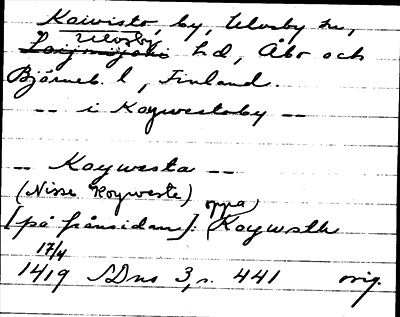 Kaivisto, by, Ulvsby sn,
Ulvsby
h d, Åbo och
Björneb. l, Finland.
-- i Koywestoby --
-- Koywesta --
(Nisse Koyweste) oppa
[på frånsidan]: Koywsth
17/4
1419 SDns 3, s. 441 orig.